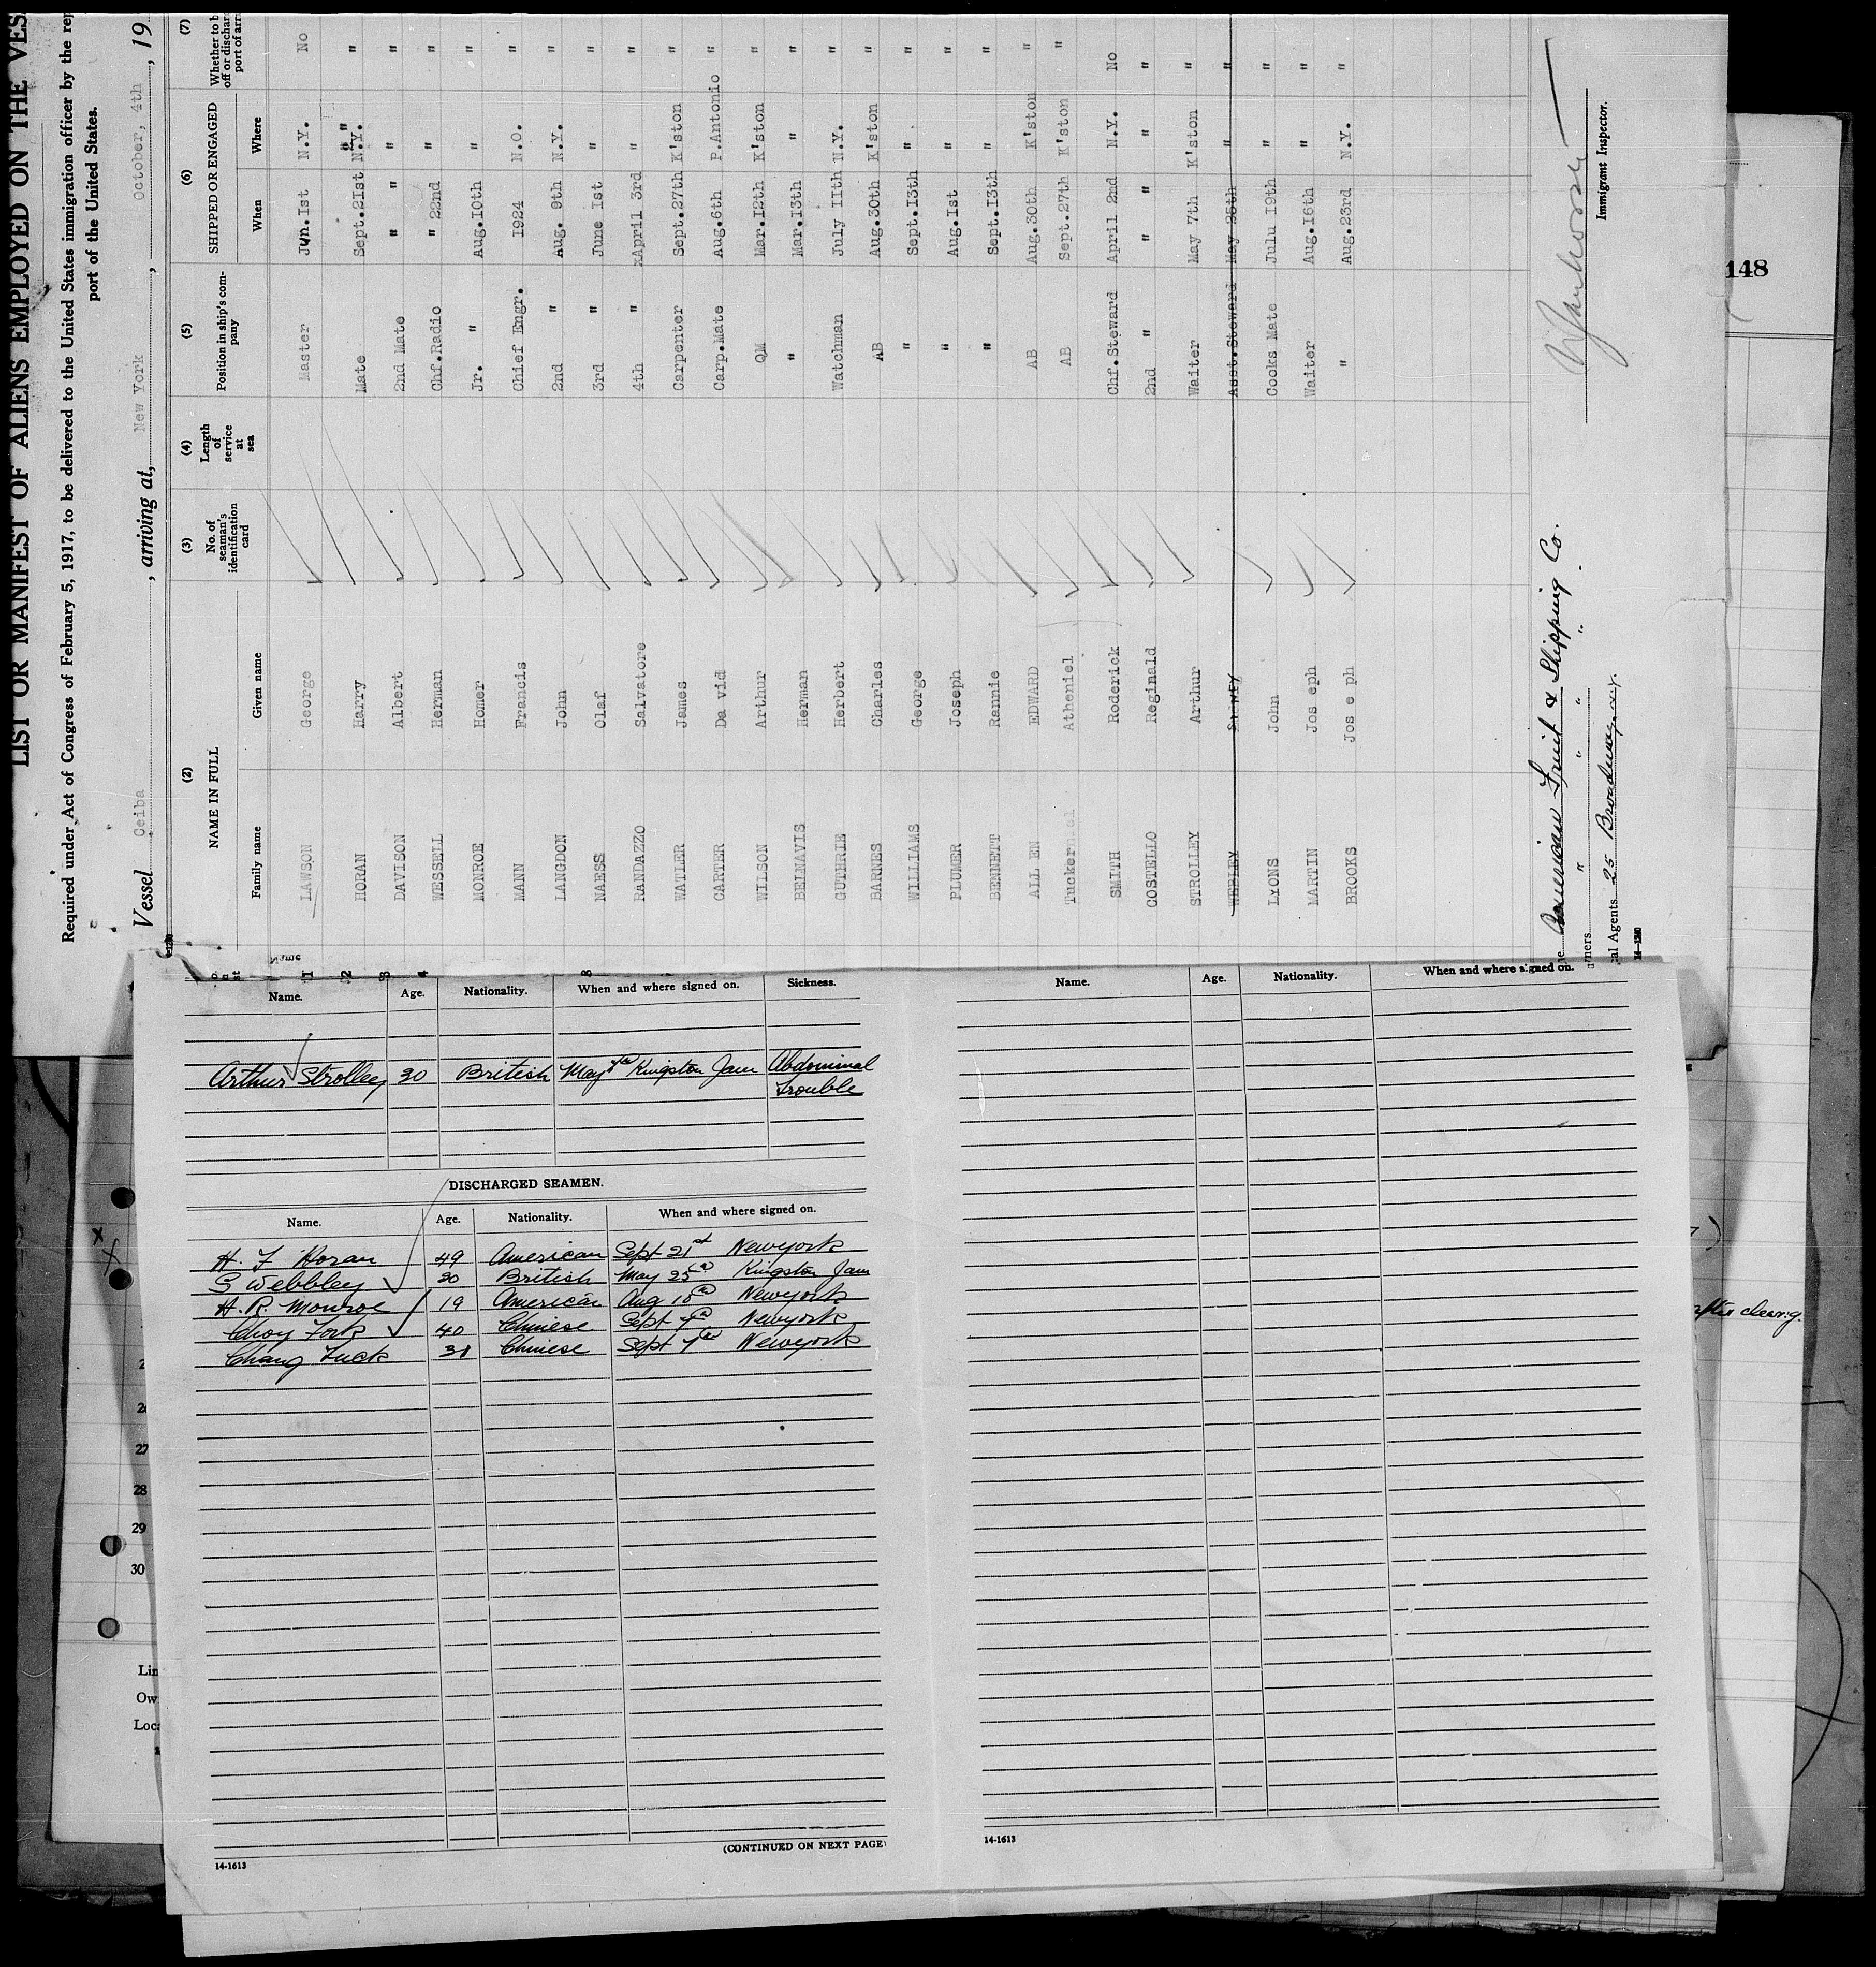 LIST OR MANIFEST OF ALIENS EMPLOYED ON THE VES
Required under Act of Congress of February 5, 1917, to be delivered to the United States immigration officer by the rep
port of the United States.
Vessel Ceiba, arriving at, New York, October, 4th, 19
(2) (3) (4) (5) (6) (7)
NAME IN FULL No. of seaman's identification card Length of service at sea Position in ship's company SHIPPED OR ENGAGED Whether to b off or dischar port of arr
Family name Given name When Where
LAWSON George Master Jun.1st N.Y. No
HORAN Harry Mate Sept.21st N.Y. "
DAVISON Albert 2nd Mate " " " "
WESSELL Herman Chf.Radio " 22nd " "
MONROE Homer Jr. " Aug.10th " "
MANN Francis Chief Engr. 1924 N.O. "
LANGDON John 2nd " Aug. 9th N.Y. "
NAESS Olaf 3rd " June 1st " "
RANDAZZO Salvatore 4th " xApril 3rd " "
WATLER James Carpenter Sept.27th K'ston "
CARTER Da vid Carp.Mate Aug.6th P.Antonio "
WILSON Arthur QM Mar.12th K'ston "
BELNAVIS Herman " Mar.13th " "
GUTHRIE Herbert Watchman July 11th N.Y. "
BARNES Charles AB Aug.30th K'ston "
WILLIAMS George " Sept.13th " "
PLUMER Joseph " Aug.1st " "
BENNETT Rannie " Sept.13th " "
ALL EN EDWARD AB Aug.30th K'ston "
Tucker Atheniel AB Sept.27th K'ston "
SMITH Roderick Chf.Steward April 2nd N.Y. No
COSTELLO Reginald 2nd " " " " "
STROLLEY Arthur Waiter May 7th K'ston "
WEBLEY SYDNEY Asst.Steward May 25th " "
LYONS John Cooks Mate Julu 19th " "
MARTIN Jos eph Waiter Aug.16th " "
BROOKS Jos e ph " Aug.23rd N.Y. "
American Fruit & Shipping Co.
wners " " " "
al Agents 25 Broadway, N.Y.
14-1240
Immigrant Inspector.
148
Name. Age. Nationality. When and where signed on. Sickness.
Arthur Strolley 30 British May 7th Kingston Jam Abdominal
Trouble
DISCHARGED SEAMEN.
Name. Age. Nationality. When and where signed on.
H. F Horan 49 American Sept 21st Newyork
S Webbley 30 British May 25th Kingston Jam
H. R. Monroe 19 American Aug 10th Newyork
Choy Fork 40 Chinese Sept 7th Newyork
Chang Tuck 31 Chinese Sept 7th Newyork
(CONTINUED ON NEXT PAGE)
14-1613
Name. Age. Nationality. When and where signed on.
14-1613
after clear'g.
27
28
29
30
Lin
Ow
Loca